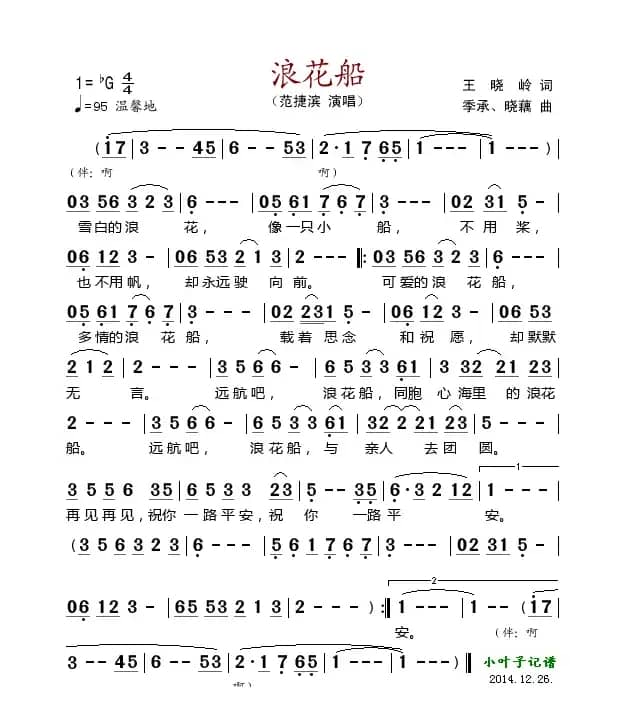 浪花船
1=♭G 4/4
♩=95 温馨地
（范捷滨 演唱）
王 晓 岭 词
季承、晓藕 曲
( i 7 | 3 - - 4 5 | 6 - - 5 3 | 2 · 1 7 6 5 | 1 - - - | 1 - - - )|
(伴：啊 啊)
0 3 5 6 3 2 3 | 6 - - - | 0 5 6 1 7 6 7 | 3 - - - | 0 2 3 1 5 -|
雪白的浪 花， 像一只小 船， 不 用 桨，
0 6 1 2 3 - | 0 6 5 3 2 1 3 | 2 - - - ‖: 0 3 5 6 3 2 3 | 6 - - -|
也不用帆， 却永远驶 向前。 可爱的浪 花船，
0 5 6 1 7 6 7 | 3 - - - | 0 2 2 2 3 1 5 - | 0 6 1 2 3 - | 0 6 5 3
多情的浪 花 船， 载着 思念 和祝 愿， 却默默
2 1 2 | 2 - - - | 3 5 6 6 - | 6 5 3 5 6 1 | 3 3 2 2 1 2 3
无 言。 远航吧， 浪花船，同胞 心海里 的浪花
2 - - - | 3 5 6 6 - | 6 5 3 3 6 1 | 3 2 2 2 1 2 3 | 5 - - -|
船。 远航吧， 浪花船，与 亲人 去团 圆。
1
3 5 5 6 3 5 | 6 5 3 3 2 3 | 5 - - 3 5 | 6 · 3 2 1 2 | 1 - - -|
再见再见，祝你 一路平安，祝 你 一路平 安。
( 3 5 6 3 2 3 | 6 - - - | 0 5 6 1 7 6 7 | 3 - - - | 0 2 3 1 5 -|
2
0 6 1 2 3 - | 6 5 5 3 2 1 3 | 2 - - - ):‖ 1 - - - | 1 - - ( i 7
安。 (伴：啊
3 - - 4 5 | 6 - - 5 3 | 2 · 1 7 6 5 | 1 - - - | 1 - - - )‖
啊)
小叶子记谱
2014.12.26.